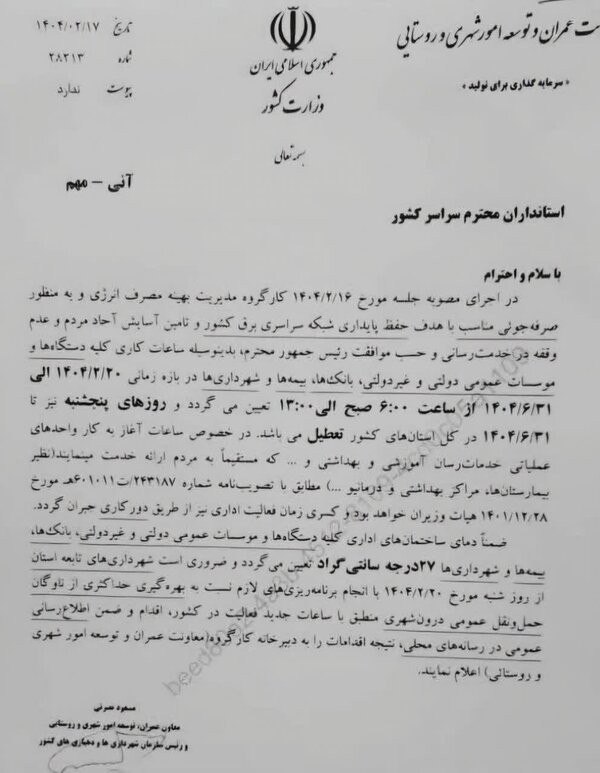 ت عمران و توسعه امور شهری و روستایی
« سرمایه گذاری برای تولید »
جمهوری اسلامی ایران
وزارت کشور
تاریخ ۱۴۰۴/۰۲/۱۷
شماره ۲۸۲۱۳
پیوست ندارد
بسمه تعالی
آنی – مهم
استانداران محترم سراسر کشور
با سلام و احترام
در اجرای مصوبه جلسه مورخ ۱۴۰۴/۲/۱۶ کارگروه مدیریت بهینه مصرف انرژی و به منظور
صرفه‌جوئی مناسب با هدف حفظ پایداری شبکه سراسری برق کشور و تامین آسایش آحاد مردم و عدم
وقفه در خدمت‌رسانی و حسب موافقت رئیس جمهور محترم، بدینوسیله ساعات کاری کلیه دستگاه‌ها و
موسسات عمومی دولتی و غیردولتی، بانک‌ها، بیمه‌ها و شهرداری‌ها در بازه زمانی ۱۴۰۴/۲/۲۰ الی
۱۴۰۴/۶/۳۱ از ساعت ۶:۰۰ صبح الی ۱۳:۰۰ تعیین می گردد و روزهای پنجشنبه نیز تا
۱۴۰۴/۶/۳۱ در کل استان‌های کشور تعطیل می باشد. در خصوص ساعات آغاز به کار واحدهای
عملیاتی خدمات‌رسان آموزشی و بهداشتی و ... که مستقیماً به مردم ارائه خدمت مینمایند(نظیر
بیمارستان‌ها، مراکز بهداشتی و درمانیو ...) مطابق با تصویب‌نامه شماره ۲۴۳۱۸۷/ت۶۰۱۰۱۱هـ مورخ
۱۴۰۱/۱۲/۲۸ هیات وزیران خواهد بود و کسری زمان فعالیت اداری نیز از طریق دورکاری جبران گردد.
ضمناً دمای ساختمان‌های اداری کلیه دستگاه‌ها و موسسات عمومی دولتی و غیردولتی، بانک‌ها،
بیمه‌ها و شهرداری‌ها ۲۷درجه سانتی‌گراد تعیین می‌گردد و ضروری است شهرداری‌های تابعه استان
از روز شنبه مورخ ۱۴۰۴/۲/۲۰ با انجام برنامه‌ریزی‌های لازم نسبت به بهره‌گیری حداکثری از ناوگان
حمل‌ونقل عمومی درون‌شهری منطبق با ساعات جدید فعالیت در کشور، اقدام و ضمن اطلاع‌رسانی
عمومی در رسانه‌های محلی، نتیجه اقدامات را به دبیرخانه کارگروه(معاونت عمران و توسعه امور شهری
و روستائی) اعلام نمایند.
مسعود نصرتی
معاون عمران، توسعه امور شهری و روستایی
و رئیس سازمان شهرداری ها و دهیاری های کشور